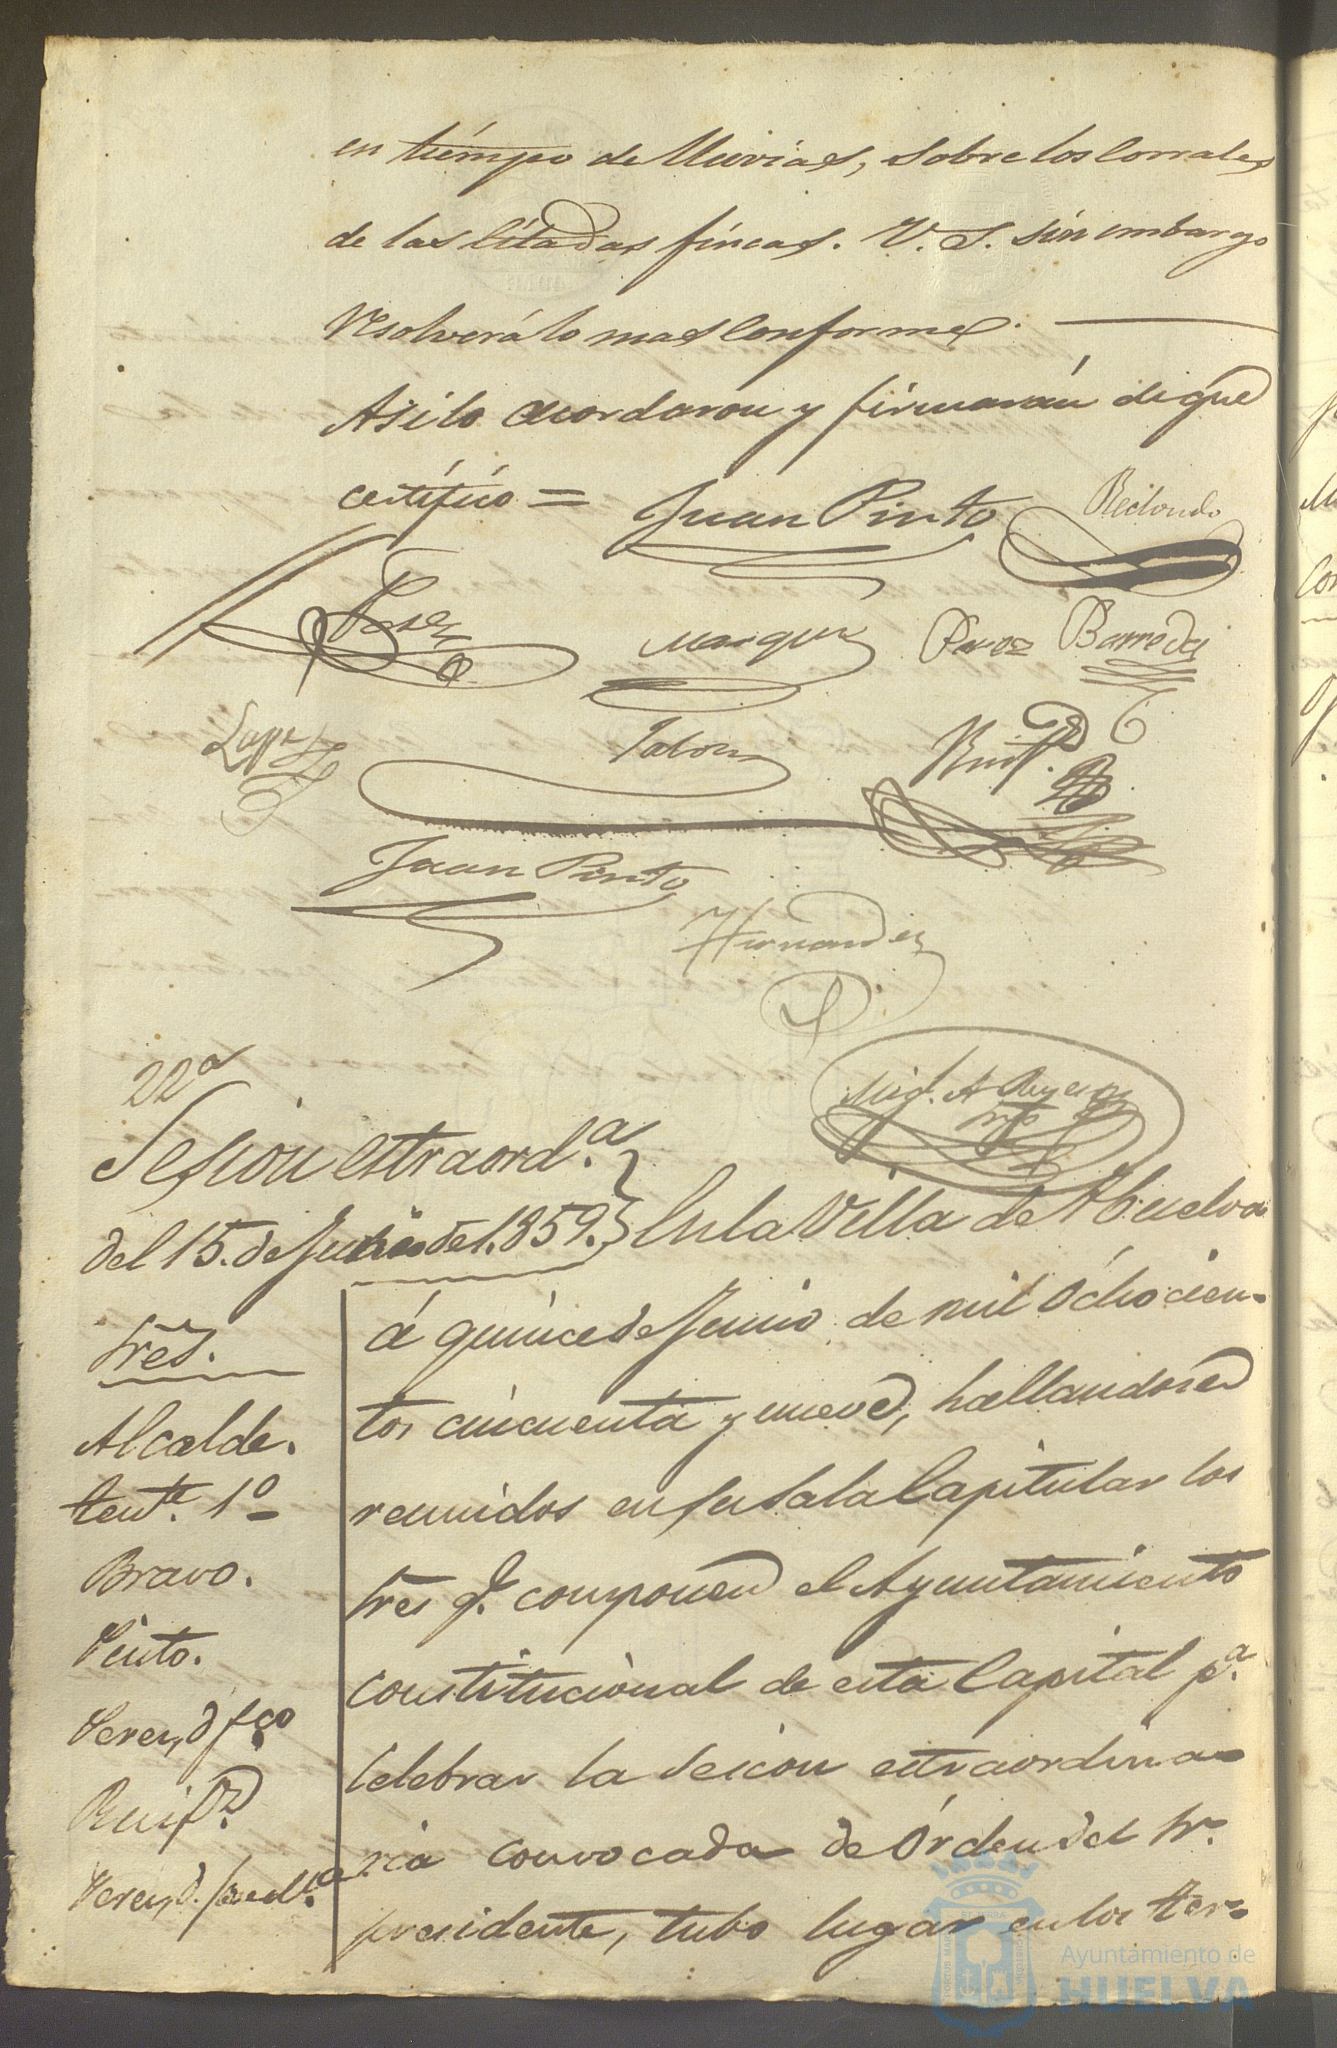 en tiempo de lluvias, sobre los corrales
de las citadas fincas. V. S. sin embargo
resolverá lo mas conforme.
Asi lo acordaron y firmarán de que
certifico =
Juan Pinto
Redondo
Perez
Marquez
Perez Barreda
Lopez
Tabon
Ruifz.
Juan Pinto
Hernandez
22ª
Sesion estraord.ª
del 15. de Junio de 1.859.
En la Villa de Huelva
á quince de Junio de mil ócho cien-
tos cincuenta y nueve, hallandose
reunidos en su Sala Capitular los
Sres q.e componen el Ayuntamiento
constitucional de esta Capital p.ª
celebrar la sesion estraordina-
ria convocada de órden del Sr.
presidente, tubo lugar en los ter-
Sres.
Alcalde.
tent.e 1º
Bravo.
Pinto.
Perez, d. Fco
Ruifz.
Perez, d.
Ayuntamiento de
HUELVA